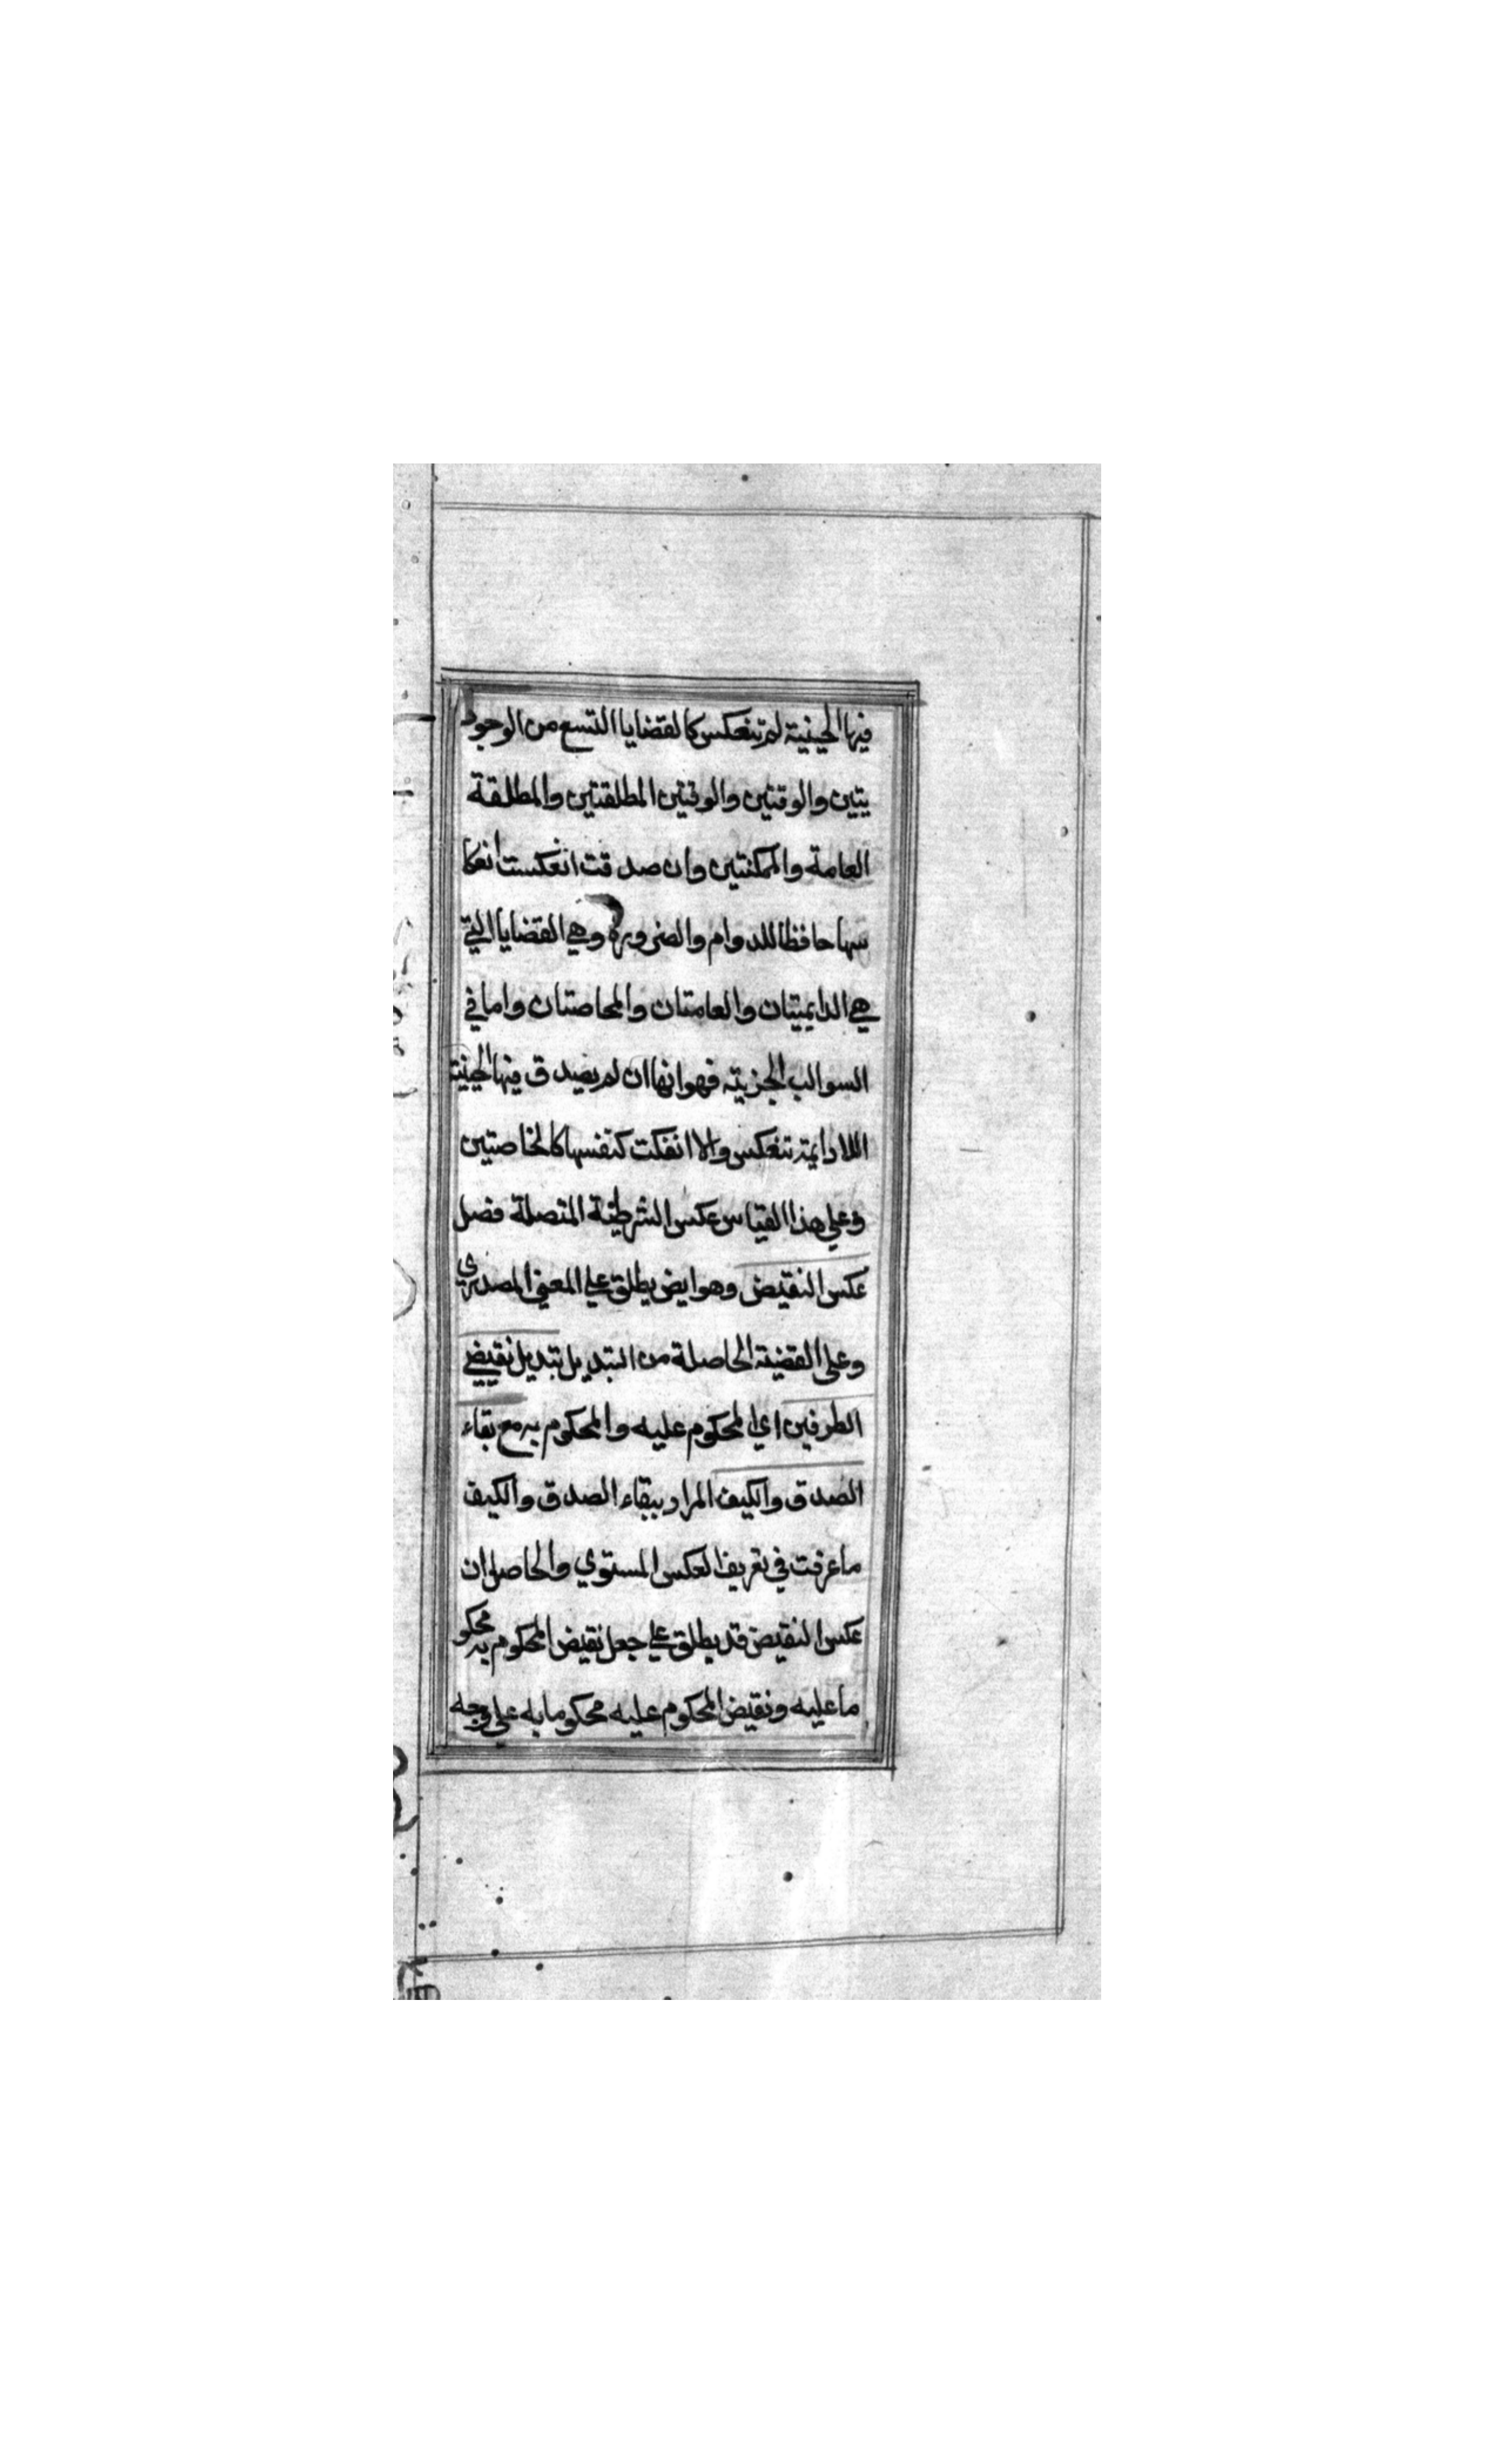 فيها الحينية لم تنعكس كالقضايا التسع من الوجود
يتين والوقتين والوقتين المطلقتين والمطلقة
العامة والممكنتين وان صدقت انعكست انعكا
سها حافظا للدوام والضرورة وهي القضايا التي
هي الدايمتان والعامتان والخاصتان واما في
السوالب الجزيته فهو انها ان لم يصدق فيها الحينية
اللادايمة تنعكس والا انفكت كنفسها كالخاصتين
وعلي هذا القياس عكس الشرطية المتصلة فصل
عكس النقيض وهو ايض يطلق علي المعني المصدري
وعلي القضية الحاصلة من التبديل تبديل نقيضي
الطرفين اي المحكوم عليه والمحكوم به مع بقاء
الصدق والكيف المراد ببقاء الصدق والكيف
ما عرفت في تعريف العكس المستوي والحاصل ان
عكس النقيض قد يطلق علي جعل نقيض المحكوم به محكو
ما عليه ونقيض المحكوم عليه محكوما به علي وجه